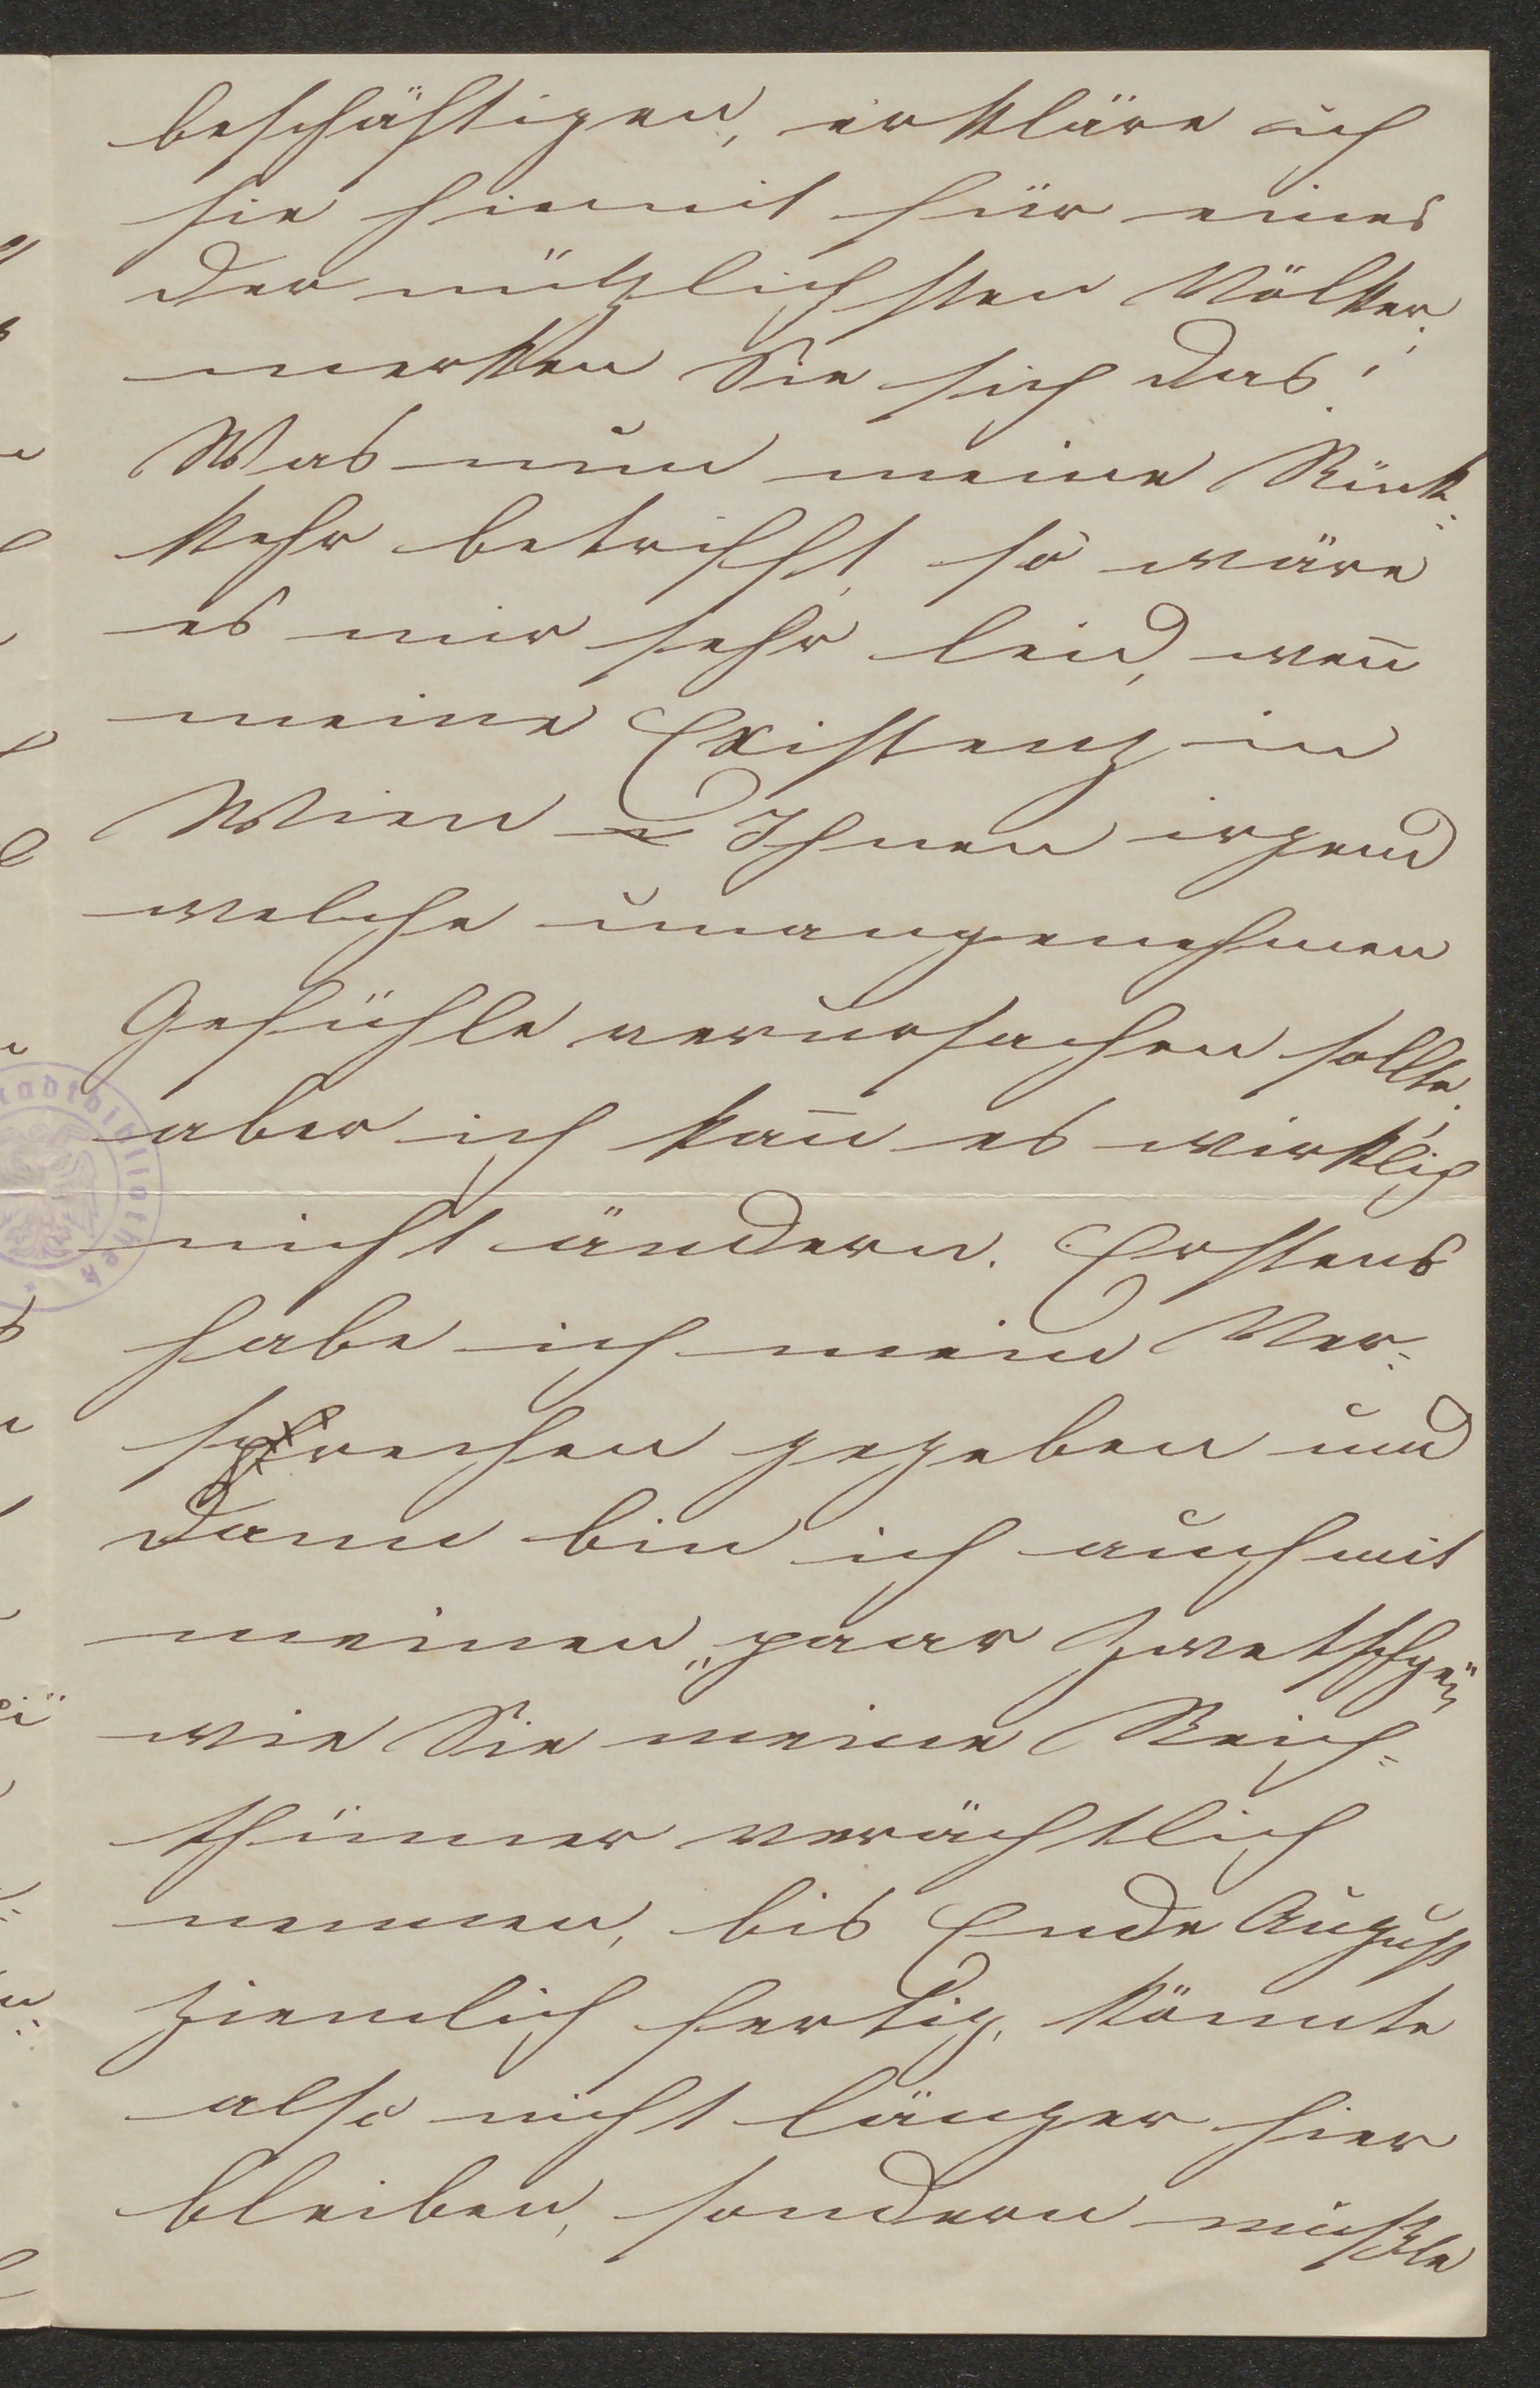 beschäftigen, erkläre ich
sie hiemit für eines
der nützlichsten Völker;
merken Sie sich das!
Was nun meine Rück-
kehr betrifft, so wäre
es mir sehr leid, wen̄
meine Existenz in
Wien Ihnen irgend
welche unangenehmen
Gefühle verursachen sollte;
aber ich kan̄ es wirklich
nicht ändern. Erstens
habe ich mein Ver-
sprechen gegeben und
dann bin ich auch mit
meinen „paar Zwetschgen“
wie Sie meine Reich-
thümer verächtlich
nennen, bis Ende August
ziemlich fertig, könnte
also nicht länger hier
bleiben, sondern müßte
Stadtbibliothek